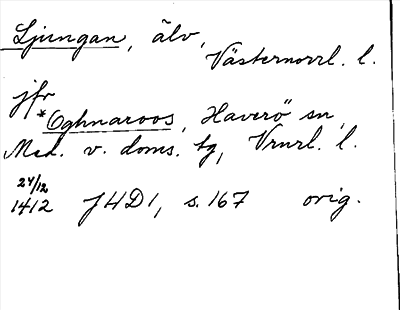 Ljungan, älv,
Västernorrl. l.
jfr
*Oghnaroos, Haverö sn,
Med. v. doms. tg, Vnrrl. l.
24/12
1412 JHD 1, s. 167 orig.